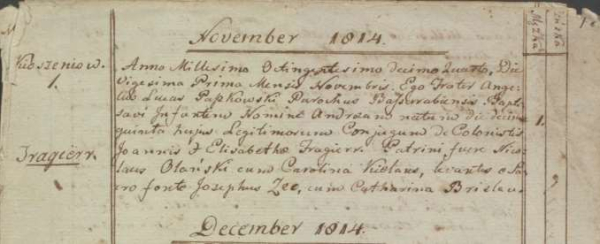 November 1814.
Anno Millesimo Octingentesimo decimo Quarto, Die
Vigesima Prima Mensis Novembris. Ego Frater Ange-
Lucas Papkowski Parochus Bapti-
savi Infantem Nomine Andream natum die decima
quinta hujus Legitimorum Conjugum de Colonistis
Joannis & Elisabethæ Tragierr. Patrini fuere Nico-
laus Olański cum Carolina levantes e Sa-
cro fonte Josephus Zee, cum Catharina
1.
Tragierr.
1.
December 1814.